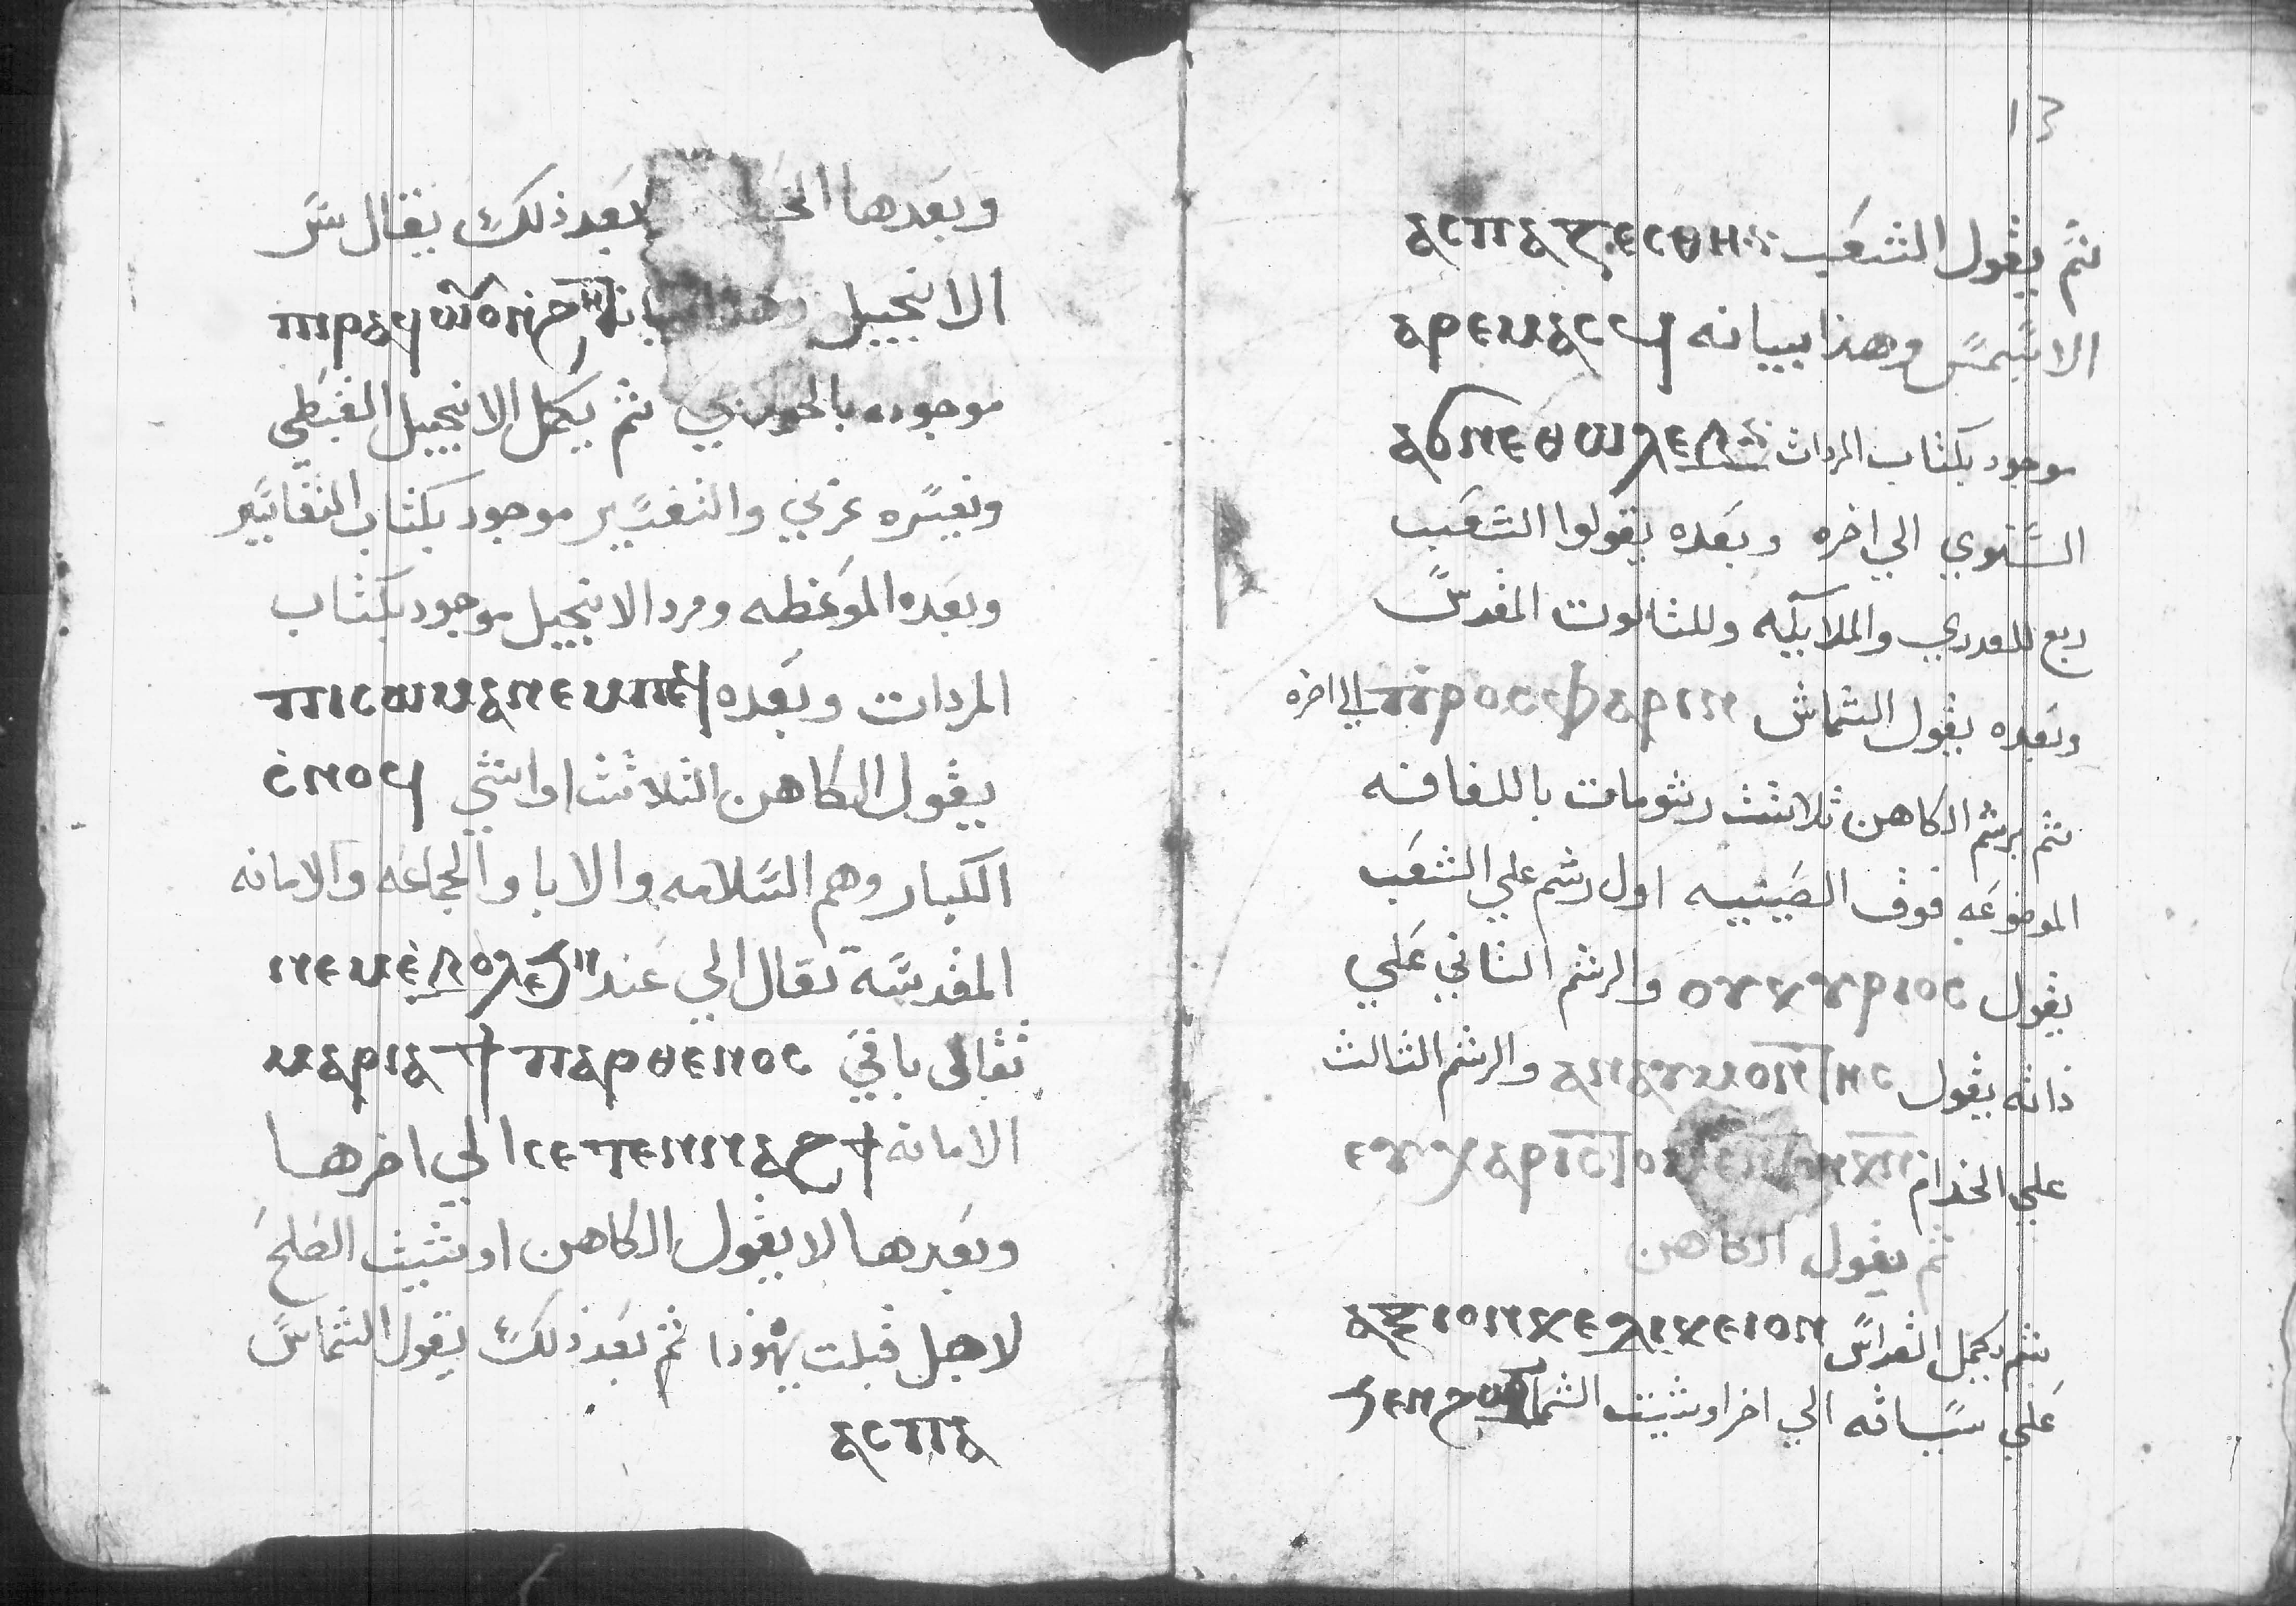 13
ثم يقول الشعب ⲁⲥⲡⲁⲍⲉⲥⲑⲏ
الاسبسمس وهذا بيانه ⲁⲣⲉⲙⲁⲥϥ
موجود بكتاب المردات ⲁϭⲛⲉⲑⲱⲗⲉⲗ
السنوي الي اخره وبعده يقولوا الشعب
ربع للعدري والملايكه وللثالوت المقدس
وبعده يقول الشماش ⲡⲣⲟⲥⲫⲁⲣⲓⲛ الي اخره
ثم يرشم الكاهن ثلاثث رشومات باللفافه
الموضوعه فوق الصينيه اول رشم علي الشعب
يقول ⲟⲩⲕⲩⲣⲓⲟⲥ والرشم الثاني علي
ذاته يقول ⲁⲛⲁⲩⲙⲟⲛ ⲏⲥ والرشم الثالث
علي الخدام ⲉⲩⲭⲁⲣⲓⲥ
ثم يقول الكاهن
ثم يكمل القداس ⲁⲝⲓⲟⲛⲕⲉⲇⲓⲕⲉⲟⲛ
علي سياثه الي اخر اوشيت الشما ϧⲉⲛϩⲱ
وبعدها بعد ذلك يقال سر
الانجيل ⲡⲣⲁϥϣⲟⲛϩ
موجوده بالخولاجي ثم يكمل الانجيل القبطي
وتفسره عربي والتفسير موجود بكتاب التفاسير
وبعده الموعظه ومرد الانجيل موجود بكتاب
المردات وبعده ⲡⲓⲥⲱⲙⲁⲛⲉⲙⲡⲓ
يقول الكاهن الثلاثث اواشي ⲥⲛⲟϥ
الكبار وهم السلامه والابا والجماعه والامانه
المقدسه تقال الي عند ⲛⲉⲙⲉⲗⲟϭ
تقالى باقي ⲙⲁⲣⲓⲁϯ ⲡⲁⲣⲑⲉⲛⲟⲥ
الامانه ⲥⲉⲧⲉⲛⲛⲁϩϯ الي اخرها
وبعدها لا يقول الكاهن اوشيت الصلح
لاجل قبلت يهوذا ثم بعد ذلك يقول الشماس
ⲁⲥⲡⲁ